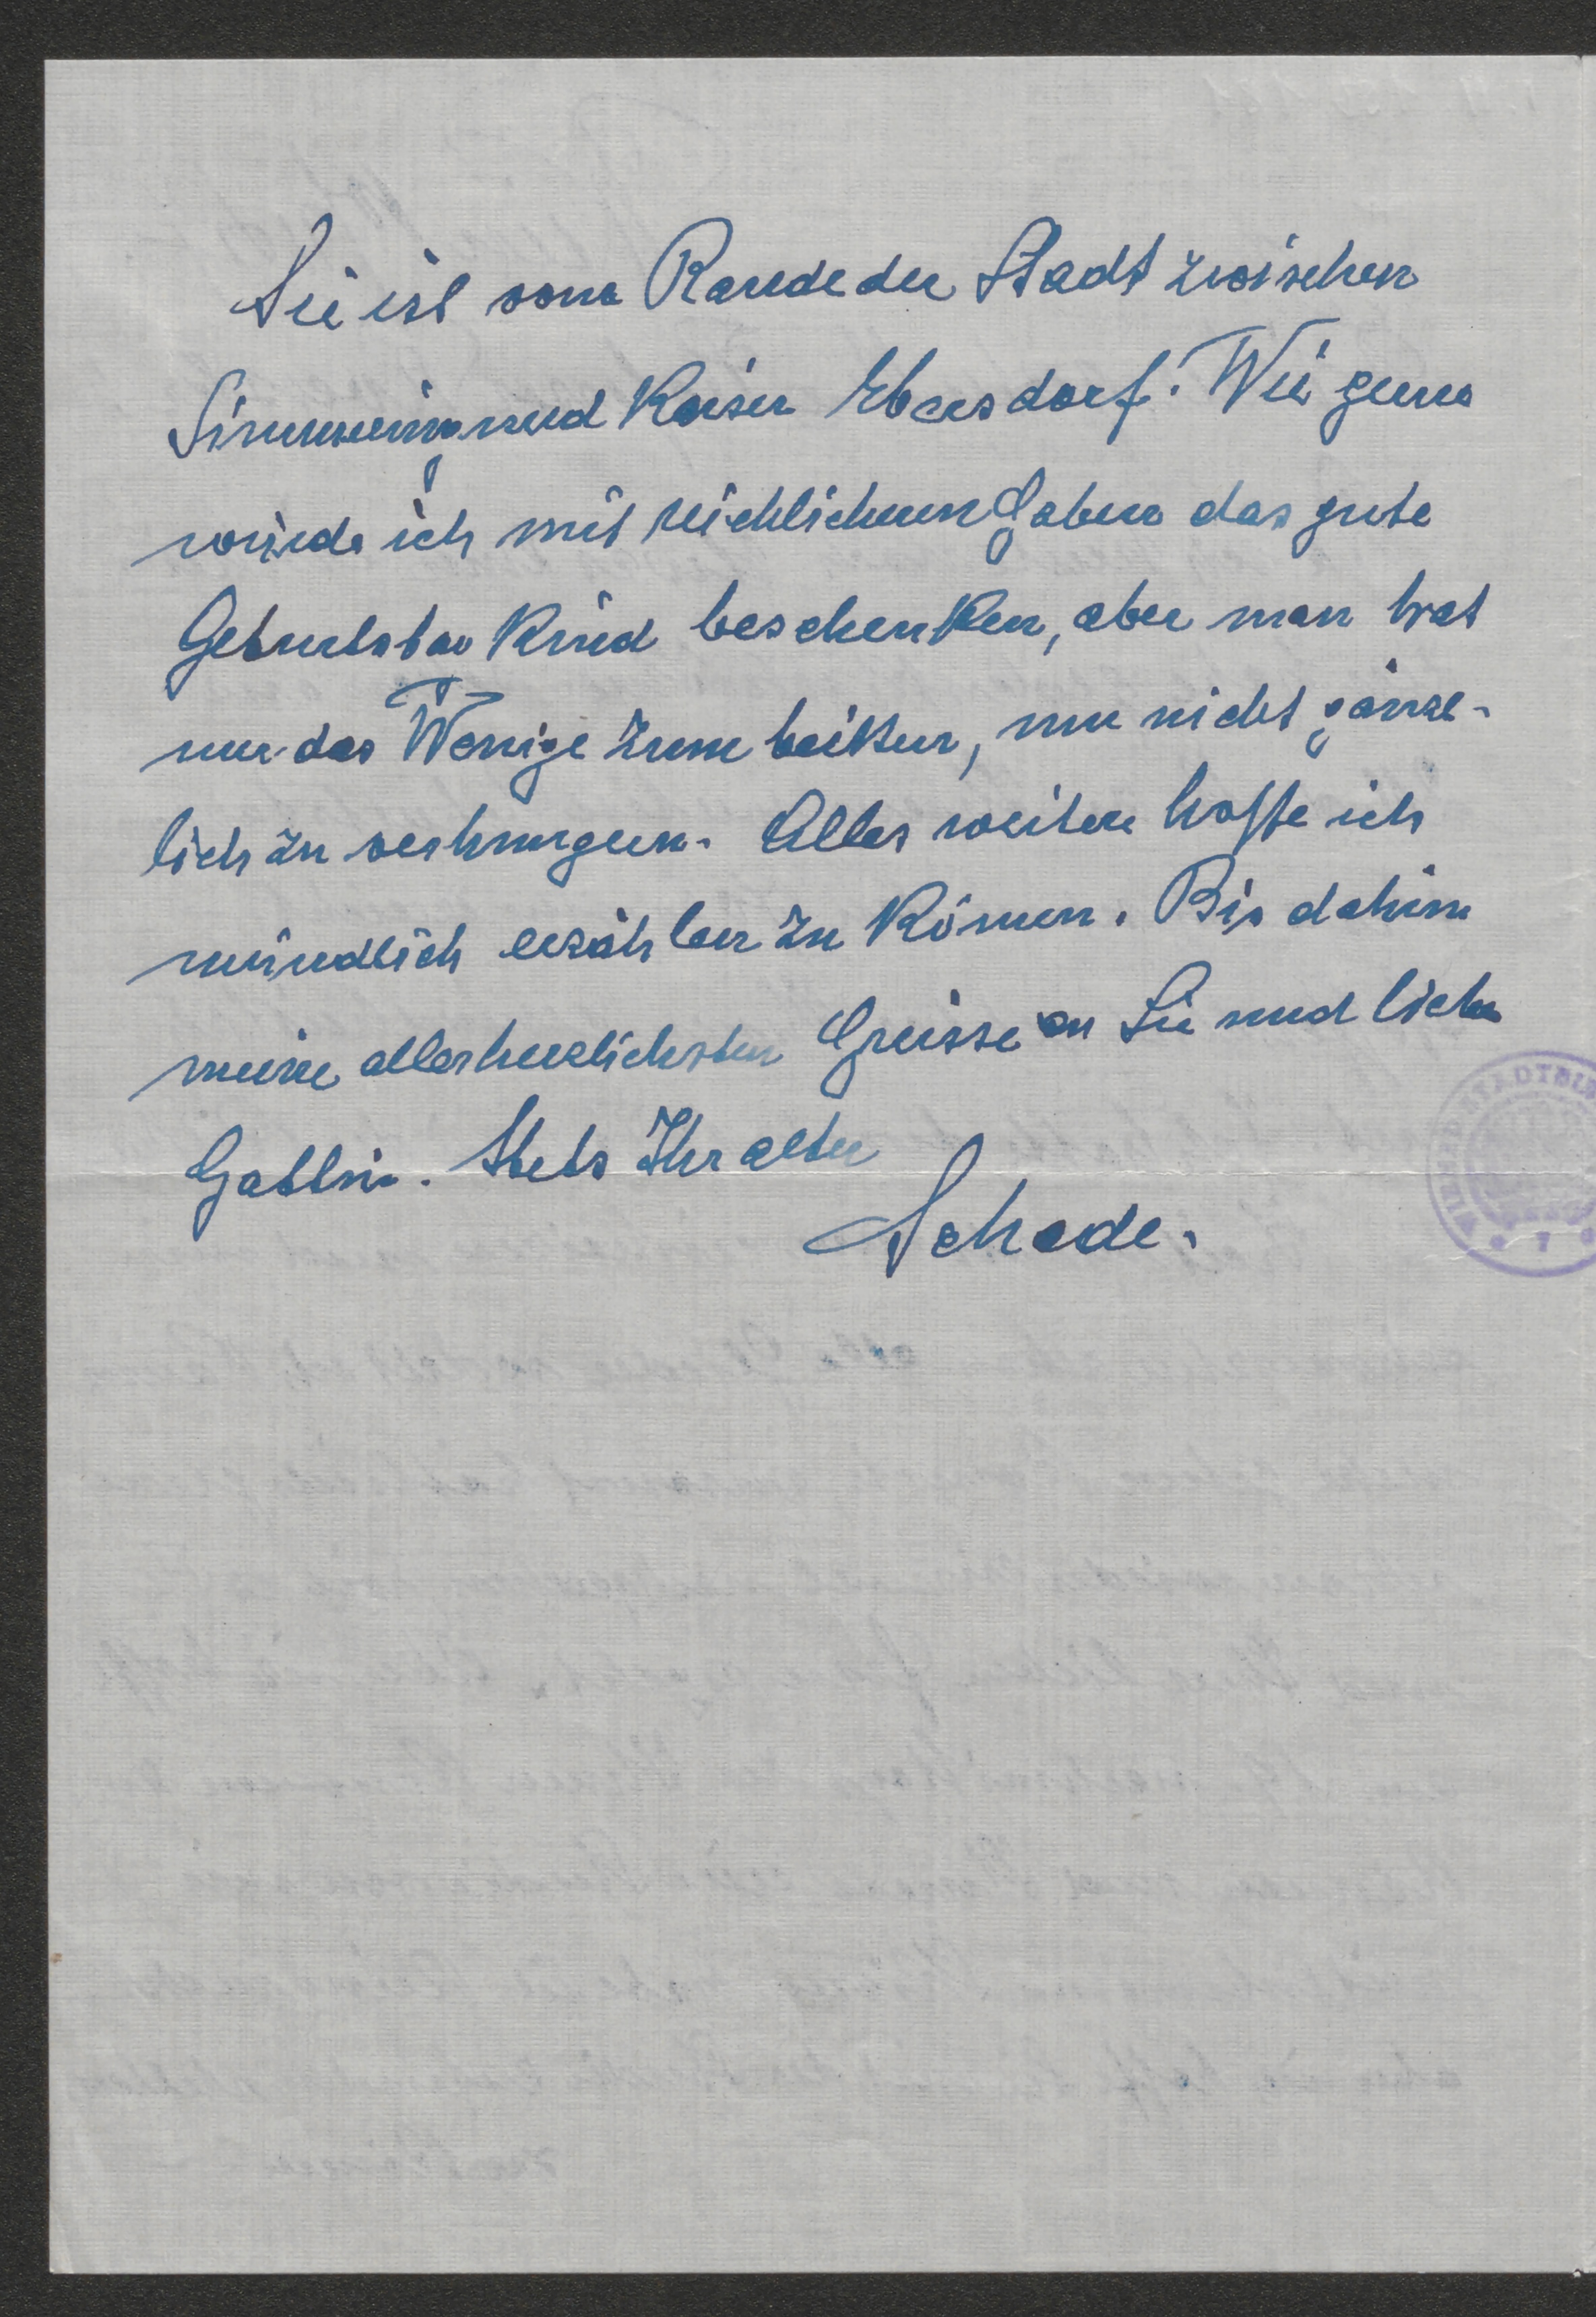 Sie ist vom Rande der Stadt zwischen
Simmering und Kaiser Ebersdorf. Wie gerne
würde ich mit reichlicheren Gaben das gute
Geburtstag Kind beschenken, aber man hat
nur das Wenige zum beißen, um nicht gänz-
lich zu verhungern. Alles weitere hoffe ich
mündlich erzählen zu können. Bis dahin
meine allerherzlichsten Grüsse an Sie und liebe
Gattin. Stets Ihr alter
Schade.